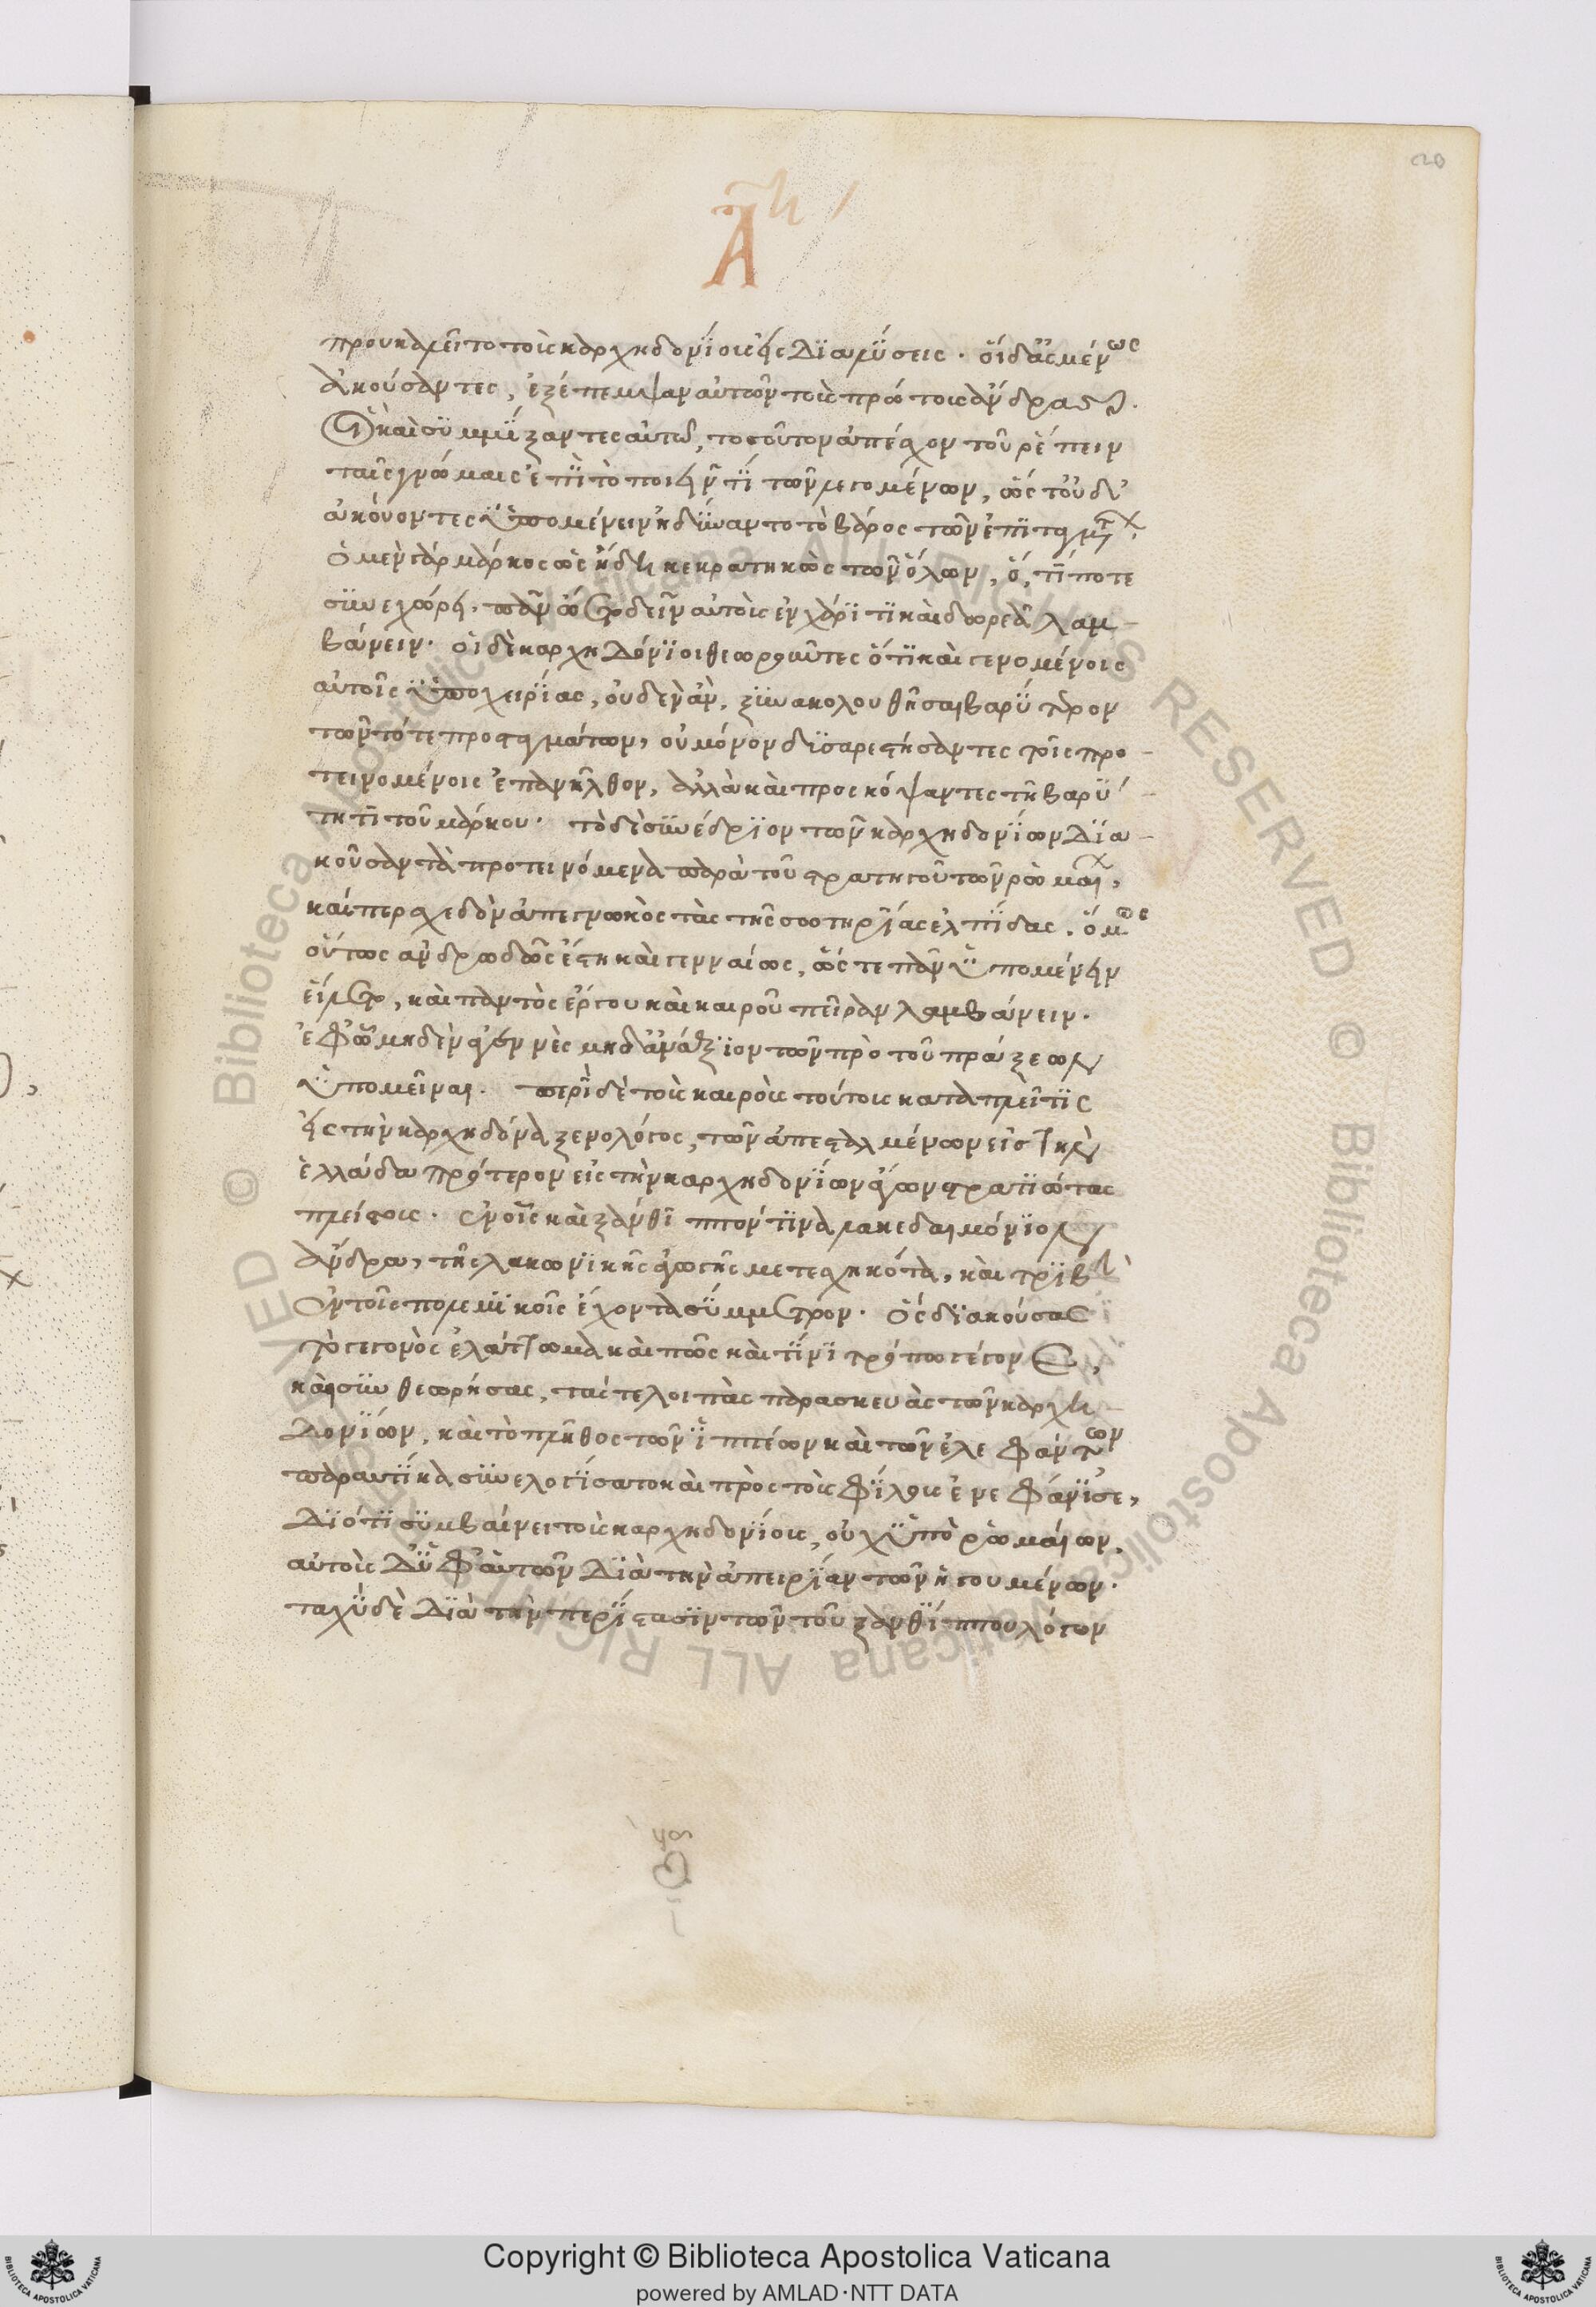 20
Α
προυκαλεῖτο τοὺς καρχηδονίους εἰς διαλύσεις. οἱ δ' ἀσμένως
ἀκούσαντες, ἐξέπεμψαν αὐτῶν τοὺς πρώτους ἄνδρας.
οἳ καὶ συμμίξαντες αὐτῶ, τοσοῦτον ἀπέσχον τοῦ ρέπειν
ταῖς γνώμαις ἐπὶ τὸ ποιεῖν τί τῶν λεγομένων, ὥς τ' οὐδ'
ἀκούοντες ὑπομένειν ἠδύναντο τὸ βάρος τῶν ἐπιταγμάτων.
ὁ μὲν γὰρ μάρκος ὡς ἤδη κεκρατηκὼς τῶν ὅλων, ὅ, τί ποτε
συνεχώρει, πᾶν ὤετο δεῖν αὐτοὺς ἐν χάριτι καὶ δωρεᾶ λαμ-
βάνειν. οἱ δὲ καρχηδόνιοι θεωροῦντες ὅτι καὶ γενομένοις
αὐτοῖς ὑποχειρίας, οὐδὲν ἂν, ξυνακολουθῆσαι βαρύτερον
τῶν τότε προσταγμάτων, οὐ μόνον δυσαρεστήσαντες τοῖς προ-
τεινομένοις ἐπανῆλθον, ἀλλὰ καὶ προσκόψαντες τῆ βαρύ-
τητι τοῦ μάρκου. τὸ δὲ συνέδριον τῶν καρχηδονίων δια-
κοῦσαν τὰ προτεινόμενα παρὰ τοῦ στρατηγοῦ τῶν ρωμαίων,
καίπερ σχεδὸν ἀπεγνωκὸς τὰς τῆς σωτηρίας ἐλπίδας. ὅμως
οὕτως ἀνδρωδῶς ἔστη καὶ γενναίως, ὥς τε πᾶν ὑπομένειν
εἵλετο, καὶ παντὸς ἔργου καὶ καιροῦ πεῖραν λαμβάνειν.
ἐφ' ὧ μηδὲν ἀγεννὲς μηδ' ἀνάξιον τῶν πρὸ τοῦ πράξεων
ὑπομεῖναι. περὶ δὲ τοὺς καιροὺς τούτους καταπλεῖ τίς
εἰς τὴν καρχηδόνα ξενολόγος, τῶν ἀπεσταλμένων εἰς τὴν
ἑλλάδα πρότερον εἰς τὴν καρχηδονίων ἄγων στρατιώτας
πλείστους. ἐν οἷς καὶ ξάνθιππον τινὰ λακεδαιμόνιον
ἄνδρα, τῆς λακωνικῆς ἀγωγῆς μετεσχηκότα, καὶ τριβὴν
ἐν τοῖς πολεμικοῖς ἔχοντα σύμμετρον. ὃς διακούσας
τὸ γεγονὸς ἐλάττωμα καὶ πῶς καὶ τίνι τρόπω γέγονε,
καὶ συνθεωρήσας, τάς τε λοιπὰς παρασκευὰς τῶν καρχη-
δονίων, καὶ τὸ πλῆθος τῶν ἱππέων καὶ τῶν ἐλεφάντων
παραυτίκα συνελογίσατο καὶ πρὸς τοὺς φίλους ἐνεφάνισε,
διότι συμβαίνει τοὺς καρχηδονίους, οὐχ ὑπὸ ρωμαίων,
αὐτοὺς δ' ὑφ' αὑτῶν διὰ τὴν ἀπειρίαν τῶν ἡγουμένων.
ταχὺ δὲ διὰ τὴν περίστασιν τῶν τοῦ ξανθίππου λόγων
Copyright © Biblioteca Apostolica Vaticana
powered by AMLAD·NTT DATA